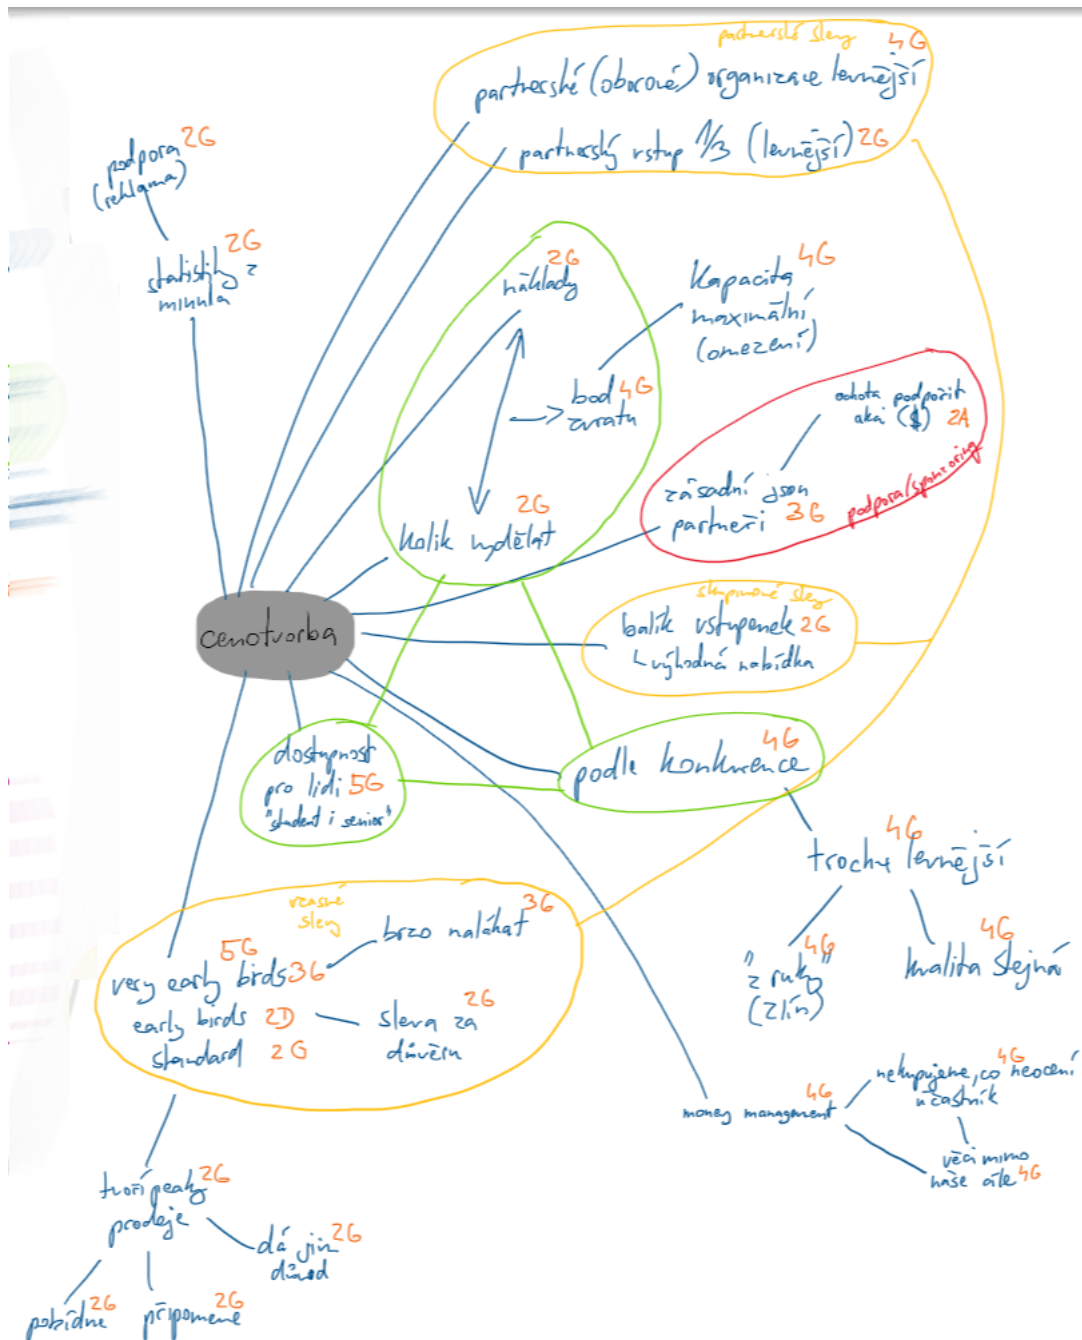 partnerské slevy 4G
partnerské (oborové) organizace levnější
partnerský vstup 1/3 (levnější) 2G
podpora 2G
(reklama)
statistiky z 2G
minula
náklady 2G
Kapacita 4G
maximální
(omezení)
bod 4G
zvratu
kolik vydělat 2G
ochota podpořit
akci ($) 2A
zásadní jsou
partneři 3G
podpora/sponzoring
cenotvorba
skupinové slevy
balík vstupenek 2G
výhodná nabídka
dostupnost
pro lidi 5G
"student i senior"
podle konkurence 4G
trochu levnější 4G
"z ruky" 4G
(Zlín)
kvalita stejná 4G
včasné
slevy
brzo nalákat 3G
5G
very early birds 3G
early birds 2D
standard 2G
sleva za 2G
důvěru
money management 4G
nekupujeme, co neocení 4G
účastník
věci mimo
naše cíle 4G
tvoří peaky 2G
prodeje
dá jim 2G
důvod
pobídne 2G
připomene 2G